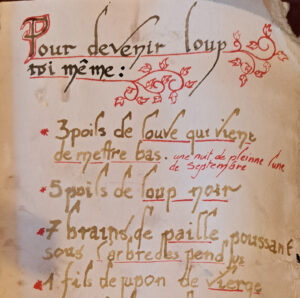 Pour devenir loup
toi même :
* 3 poils de louve qui vient
de mettre bas. une nuit de pleinne lune
de Septembre
* 5 poils de loup noir
* 7 brains de paille poussant
sous l'arbre des pendus
* 1 fils de jupon de vierge